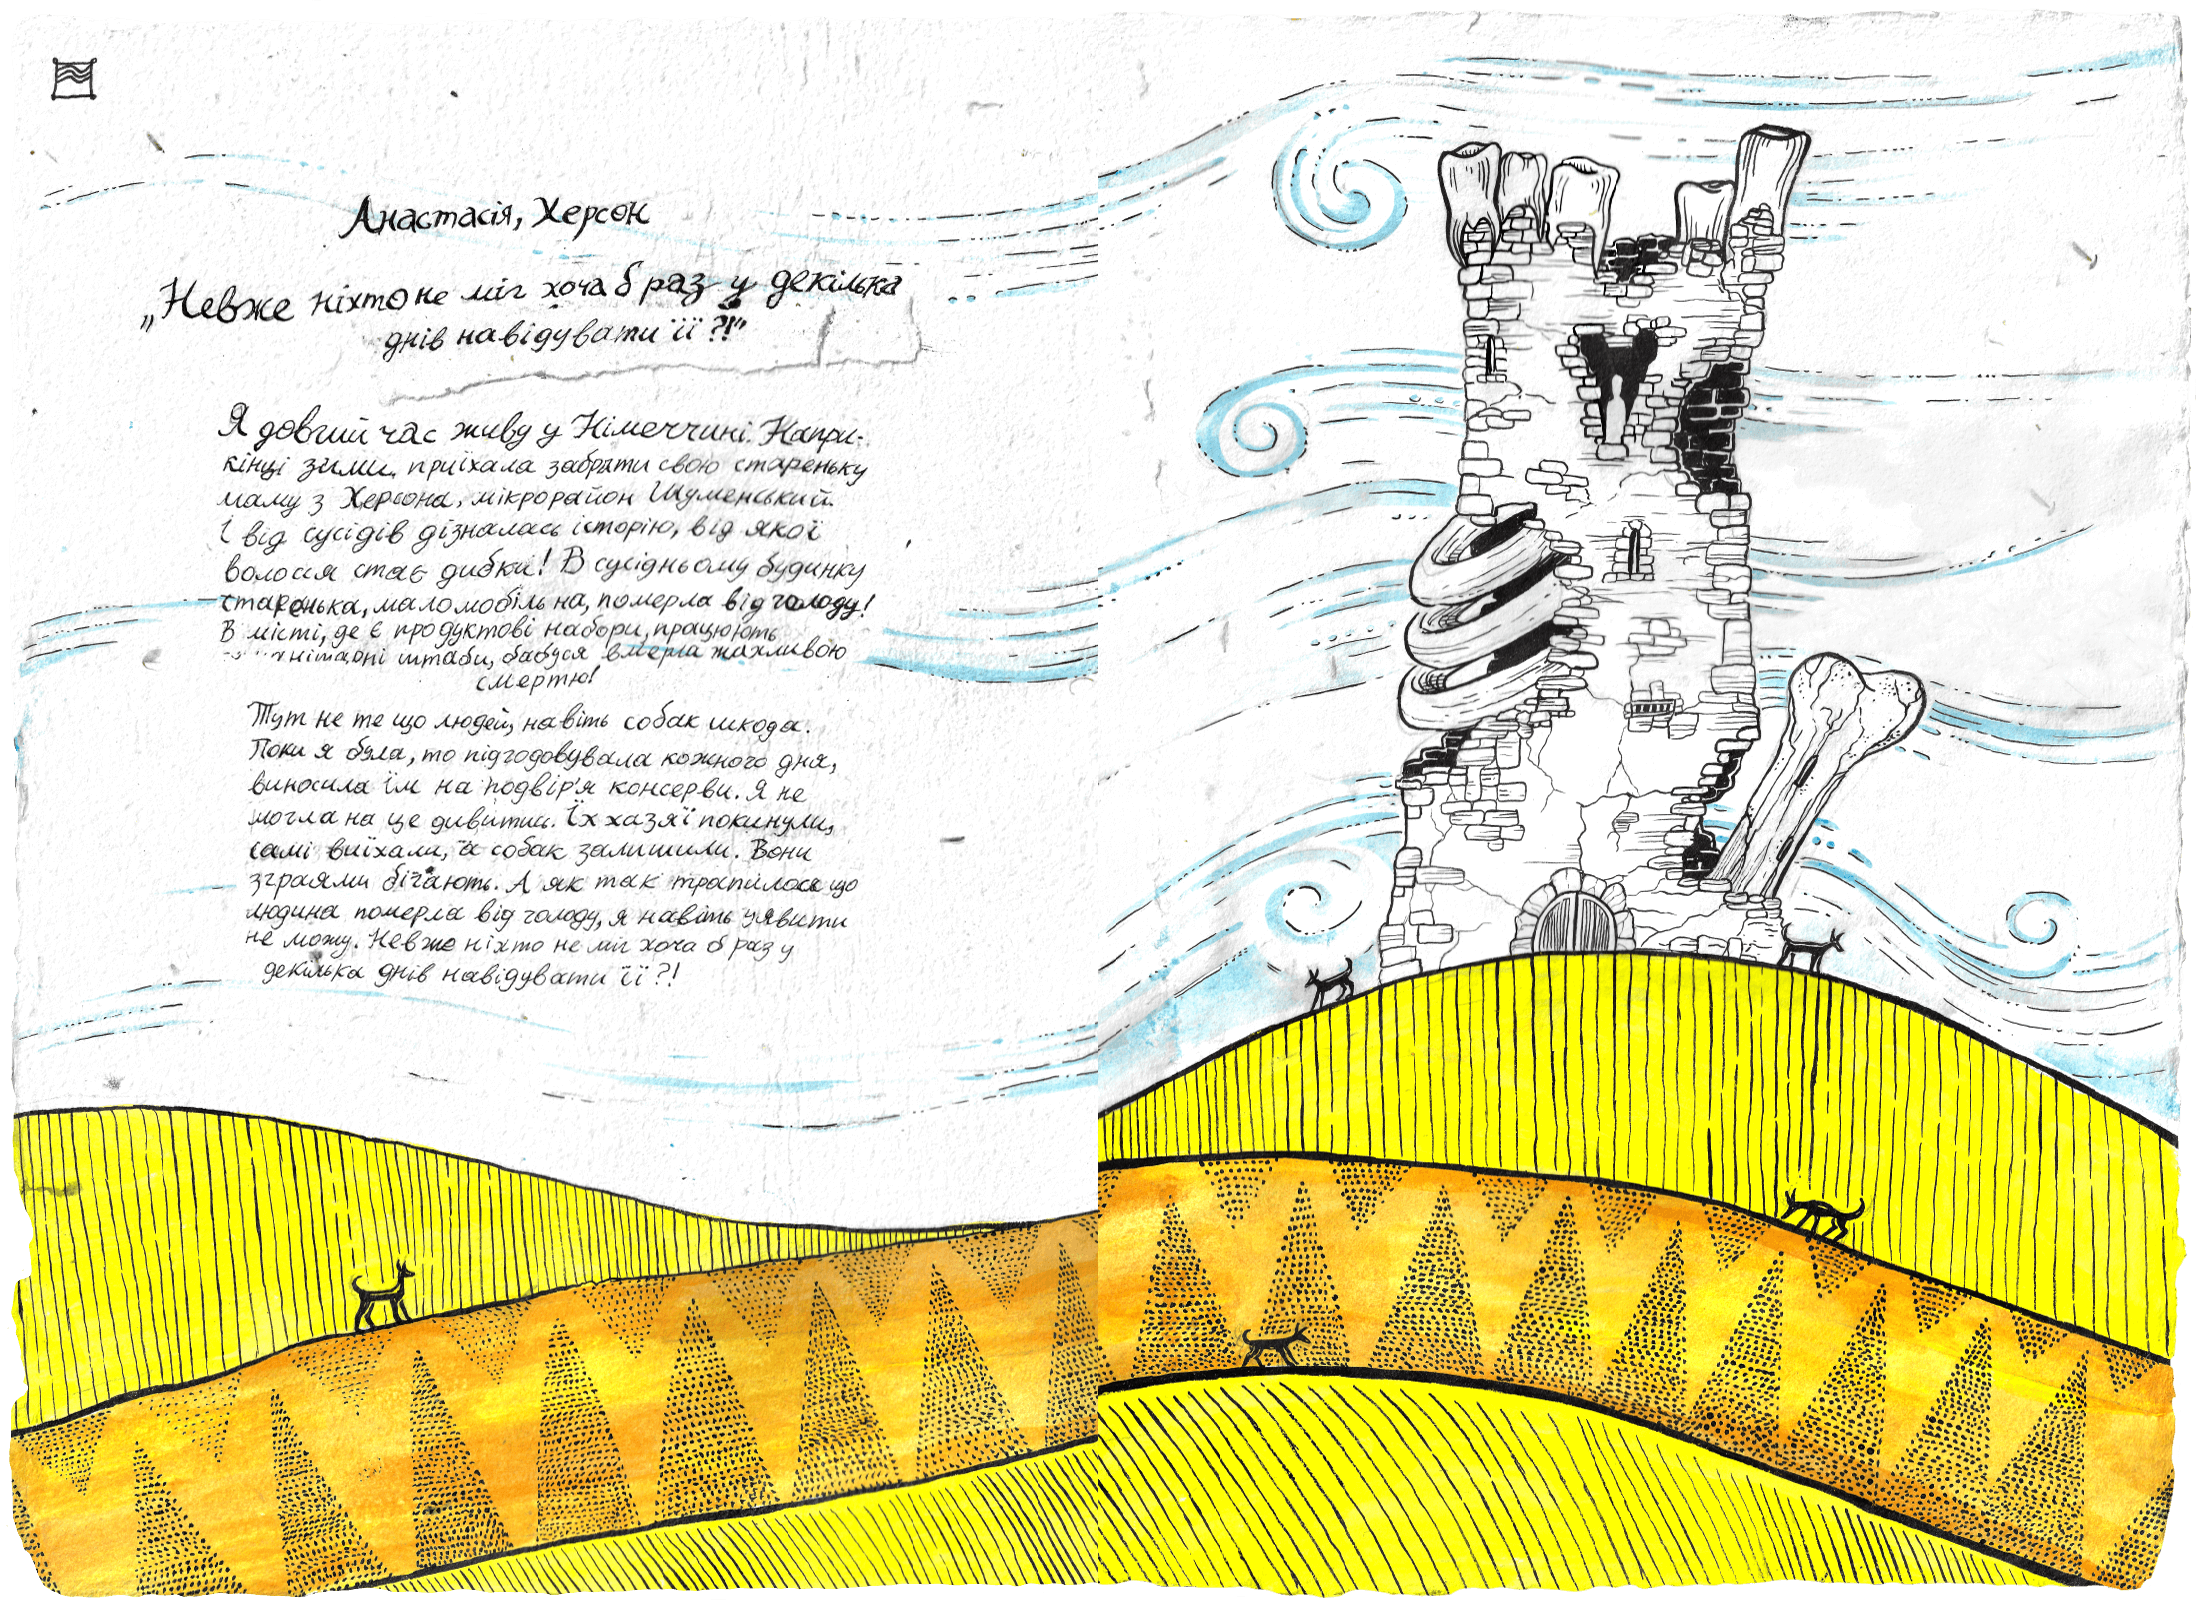 Анастасія, Херсон
„Невже ніхто не міг хоча б раз у декілька
днів навідувати її?!"
Я довгий час живу у Німеччині. Напри-
кінці зими приїхала забрати свою стареньку
маму з Херсона, мікрорайон Шуменський.
І від сусідів дізналась історію, від якої
волосся стає дибки! В сусідньому будинку
старенька, маломобільна, померла від голоду!
В місті, де є продуктові набори, працюють
штаби, бабуся вмерла жахливою
смертю!
Тут не те що людей, навіть собак шкода.
Поки я була, то підгодовувала кожного дня,
виносила їм на подвір'я консерви. Я не
могла на це дивитись. Їх хазяї покинули,
самі виїхали, а собак залишили. Вони
зграями бігають. А як так трапилось що
людина померла від голоду, я навіть уявити
не можу. Невже ніхто не міг хоча б раз у
декілька днів навідувати її?!